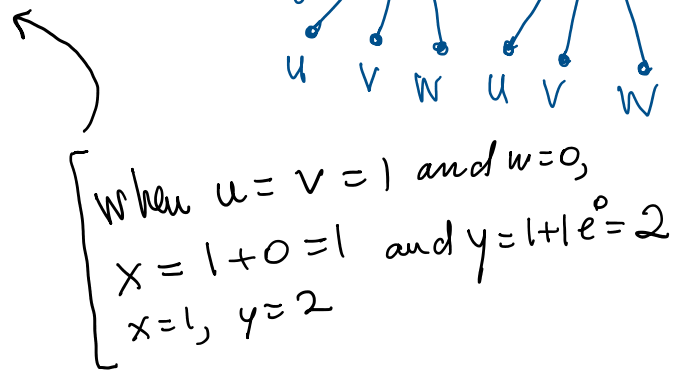 u v w u v w
when u = v = 1 and w=0,
x = 1+0 = 1 and y = 1+1e⁰ = 2
x=1, y=2